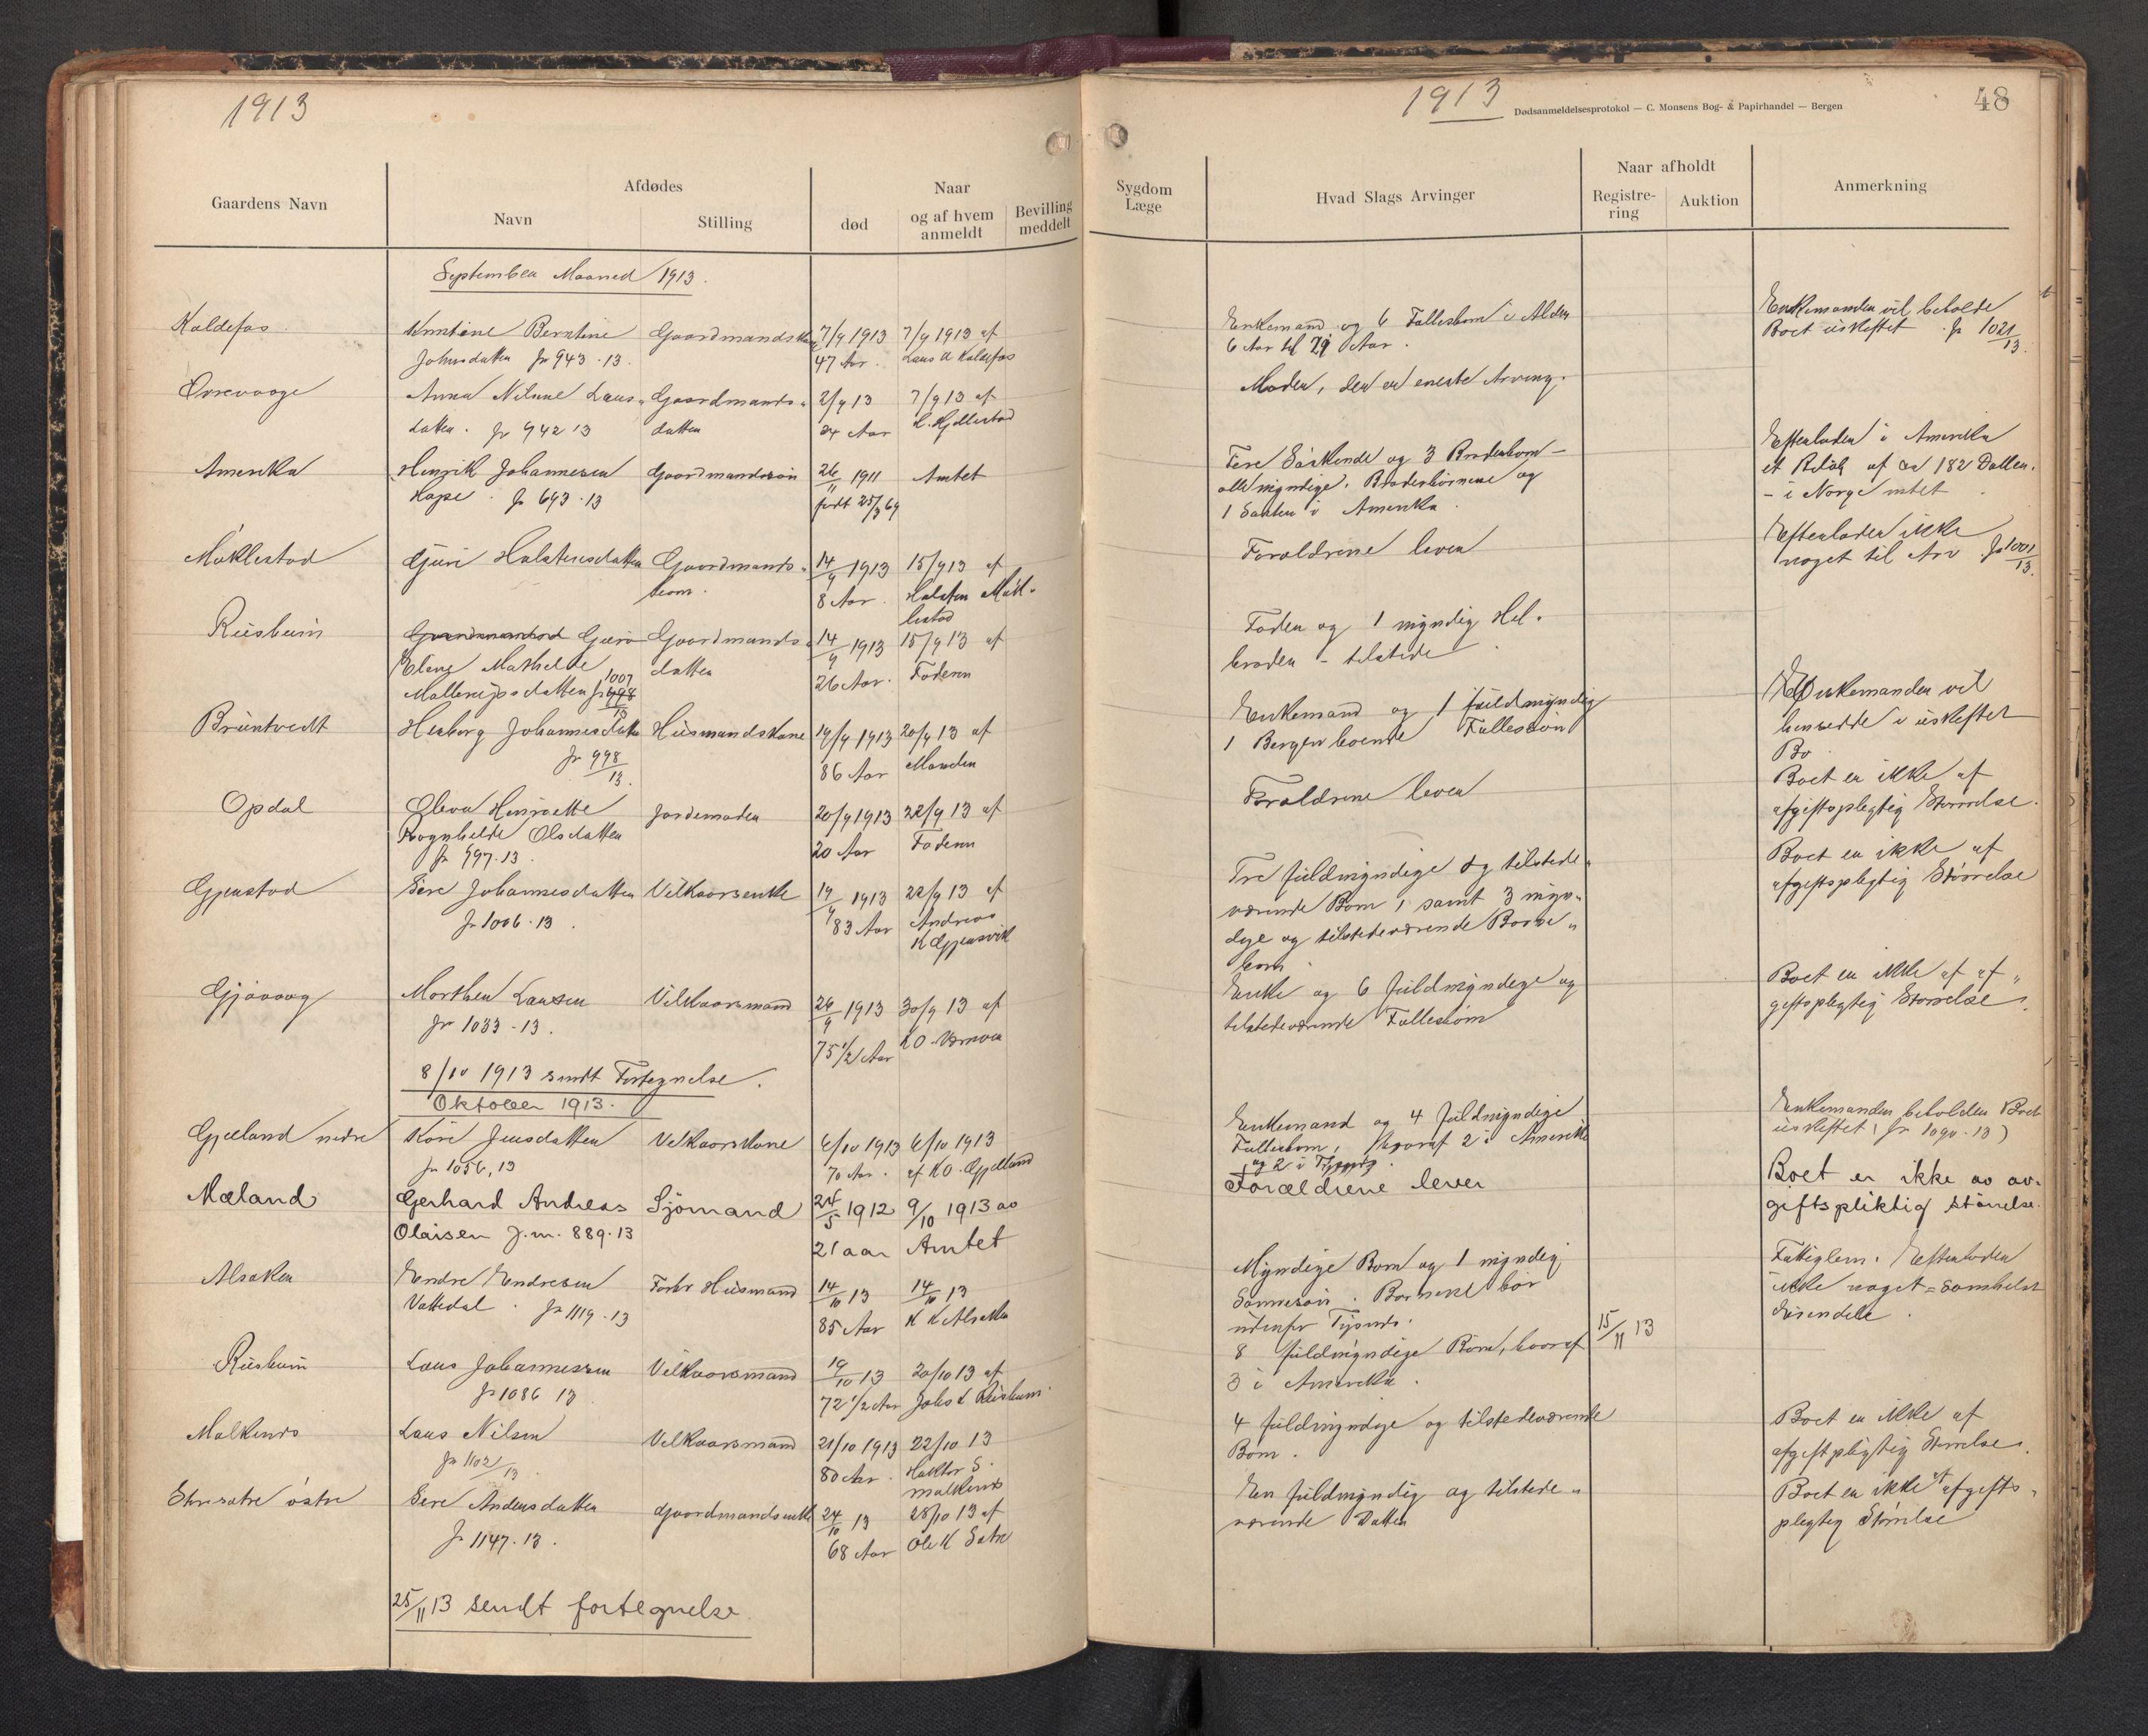 1913
Gaardens Navn
Afdødes
Navn
Stilling
Naar
død
og af hvem anmeldt
Bevilling meddelt
September Maaned 1913.
Koldefos.
Berntine Gaardmandskone 7/9 1913 7/9 1913 af
Johnsdatter Jr 943.13. 47 Aar. Laus Koldefos
Anna Laus- Gaardmands- 2/9 13 7/9 13 af
datter. Jr 942 13 datter 24 Aar
Amerika Henrik Johannesen Gaardmandssøn 26/11 1911 Amtet
Jr 693.13 født 25/3 69
Halstensdatter Gaardmands- 14/9 1913 15/9 13 af
barn. 8 Aar. Halsten
Gaardmands- 14/9 1913 15/9 13 af
Mathilde datter 26 Aar. Faderen
1007
Herborg Johannesdatter Husmandskone 19/9 1913 20/9 13 af
Jr 998/13. 86 Aar Manden
Opdal Olava Henriette Jordemoder 20/9 1913 22/9 13 af
Ragnhilde Olsdatter 20 Aar Faderen
Jr 997.13.
Johannesdatter Vilkaarsenke 19/9 1913 22/9 13 af
Jr 1006.13. 83 Aar Andreas
Morthen Larsen Vilkaarsmand 26/9 1913 30/9 13 af
Jr 1033-13. 75 1/2 Aar
8/10 1913 sendt Fortegnelse.
Oktober 1913.
Gjelland nedre Jensdatter Vilkaarskone 6/10 1913 6/10 1913
Jr 1056,13 70 Aar. af K O. Gjelland
Mæland Gerhard Andreas Sjömand 24/5 1912 9/10 1913 av
Olaisen J.nr. 889.13 21 aar Amtet
Alsaker Endre Endresen Forhv Husmand 14/10 13 14/10 13
Vattedal. Jr 1119.13 85 Aar K K Alsaker
Laus Johannessen Vilkaarsmand 19/10 13 20/10 13 af
Jr 1086 13 72 1/2 Aar Johs L
Malkenes Laus Nilsen Vilkaarsmand 21/10 1913 22/10 13
Jr 1102/13. 80 Aar. S.
Malkenes
østre Andersdatter Gaardmandsenke 24/10 13 28/10 13 af
Jr 1147.13. 68 Aar Ole K
25/11 13 sendt fortegnelse.
1913
Dødsanmeldelsesprotokol — C. Monsens Bog- & Papirhandel — Bergen
48
Sygdom
Læge
Hvad Slags Arvinger
Naar afholdt
Registre-
ring
Auktion
Anmerkning
Enkemand og 6 Fællesbørn i Alder Enkemanden vil beholde
6 Aar til 29 Aar. Boet uskiftet. Jr 1021/13.
Moder, der er eneste Arving.
Søskende og 3 Broderbørn – Efterlader i Amerika
alle myndige. Broderbørnene og et Beløb af ca 182 Dollar.
1 Søster i Amerika. – i Norge intet.
Forældrene lever Efterlader ikke
noget til Arv Jr 1001/13.
Fader og 1 myndig Hel-
broder – tilstede
Enkemand og 1 fuldmyndig Enkemanden vil
1 Bergen boende Fællessøn hensidde i uskiftet
Bo
Forældrene lever Boet er ikke af
afgiftspligtig Størrelse.
Tre fuldmyndige og tilstede- Boet er ikke af
værende Børn, samt 3 myn- afgiftspligtig Størrelse
dige og tilstedeværende Barne-
børn
Enke og 6 fuldmyndige og Boet er ikke af af-
tilstedeværende Fællesbørn giftspligtig Størrelse.
Enkemand og 4 fuldmyndige Enkemanden beholder Boet
Fællesbørn, hvoraf 2 i Amerika uskiftet, Jr 1090.13)
og 2 i
Forældrene lever Boet er ikke av av-
giftspliktig størrelse.
Myndige Børn og 1 myndig Fattiglem. Efterlader
Sønnesøn. Børnene bor ikke noget = somhelst
udenfor Tysnes. Eiendele.
8 fuldmyndige Børn, hvoraf 15/11 13
3 i Amerika.
4 fuldmyndige og tilstedeværende Boet er ikke af
Børn. afgiftspligtig Størrelse.
En fuldmyndig og tilstede- Boet er ikke af afgifts-
værende Datter pligtig Størrelse